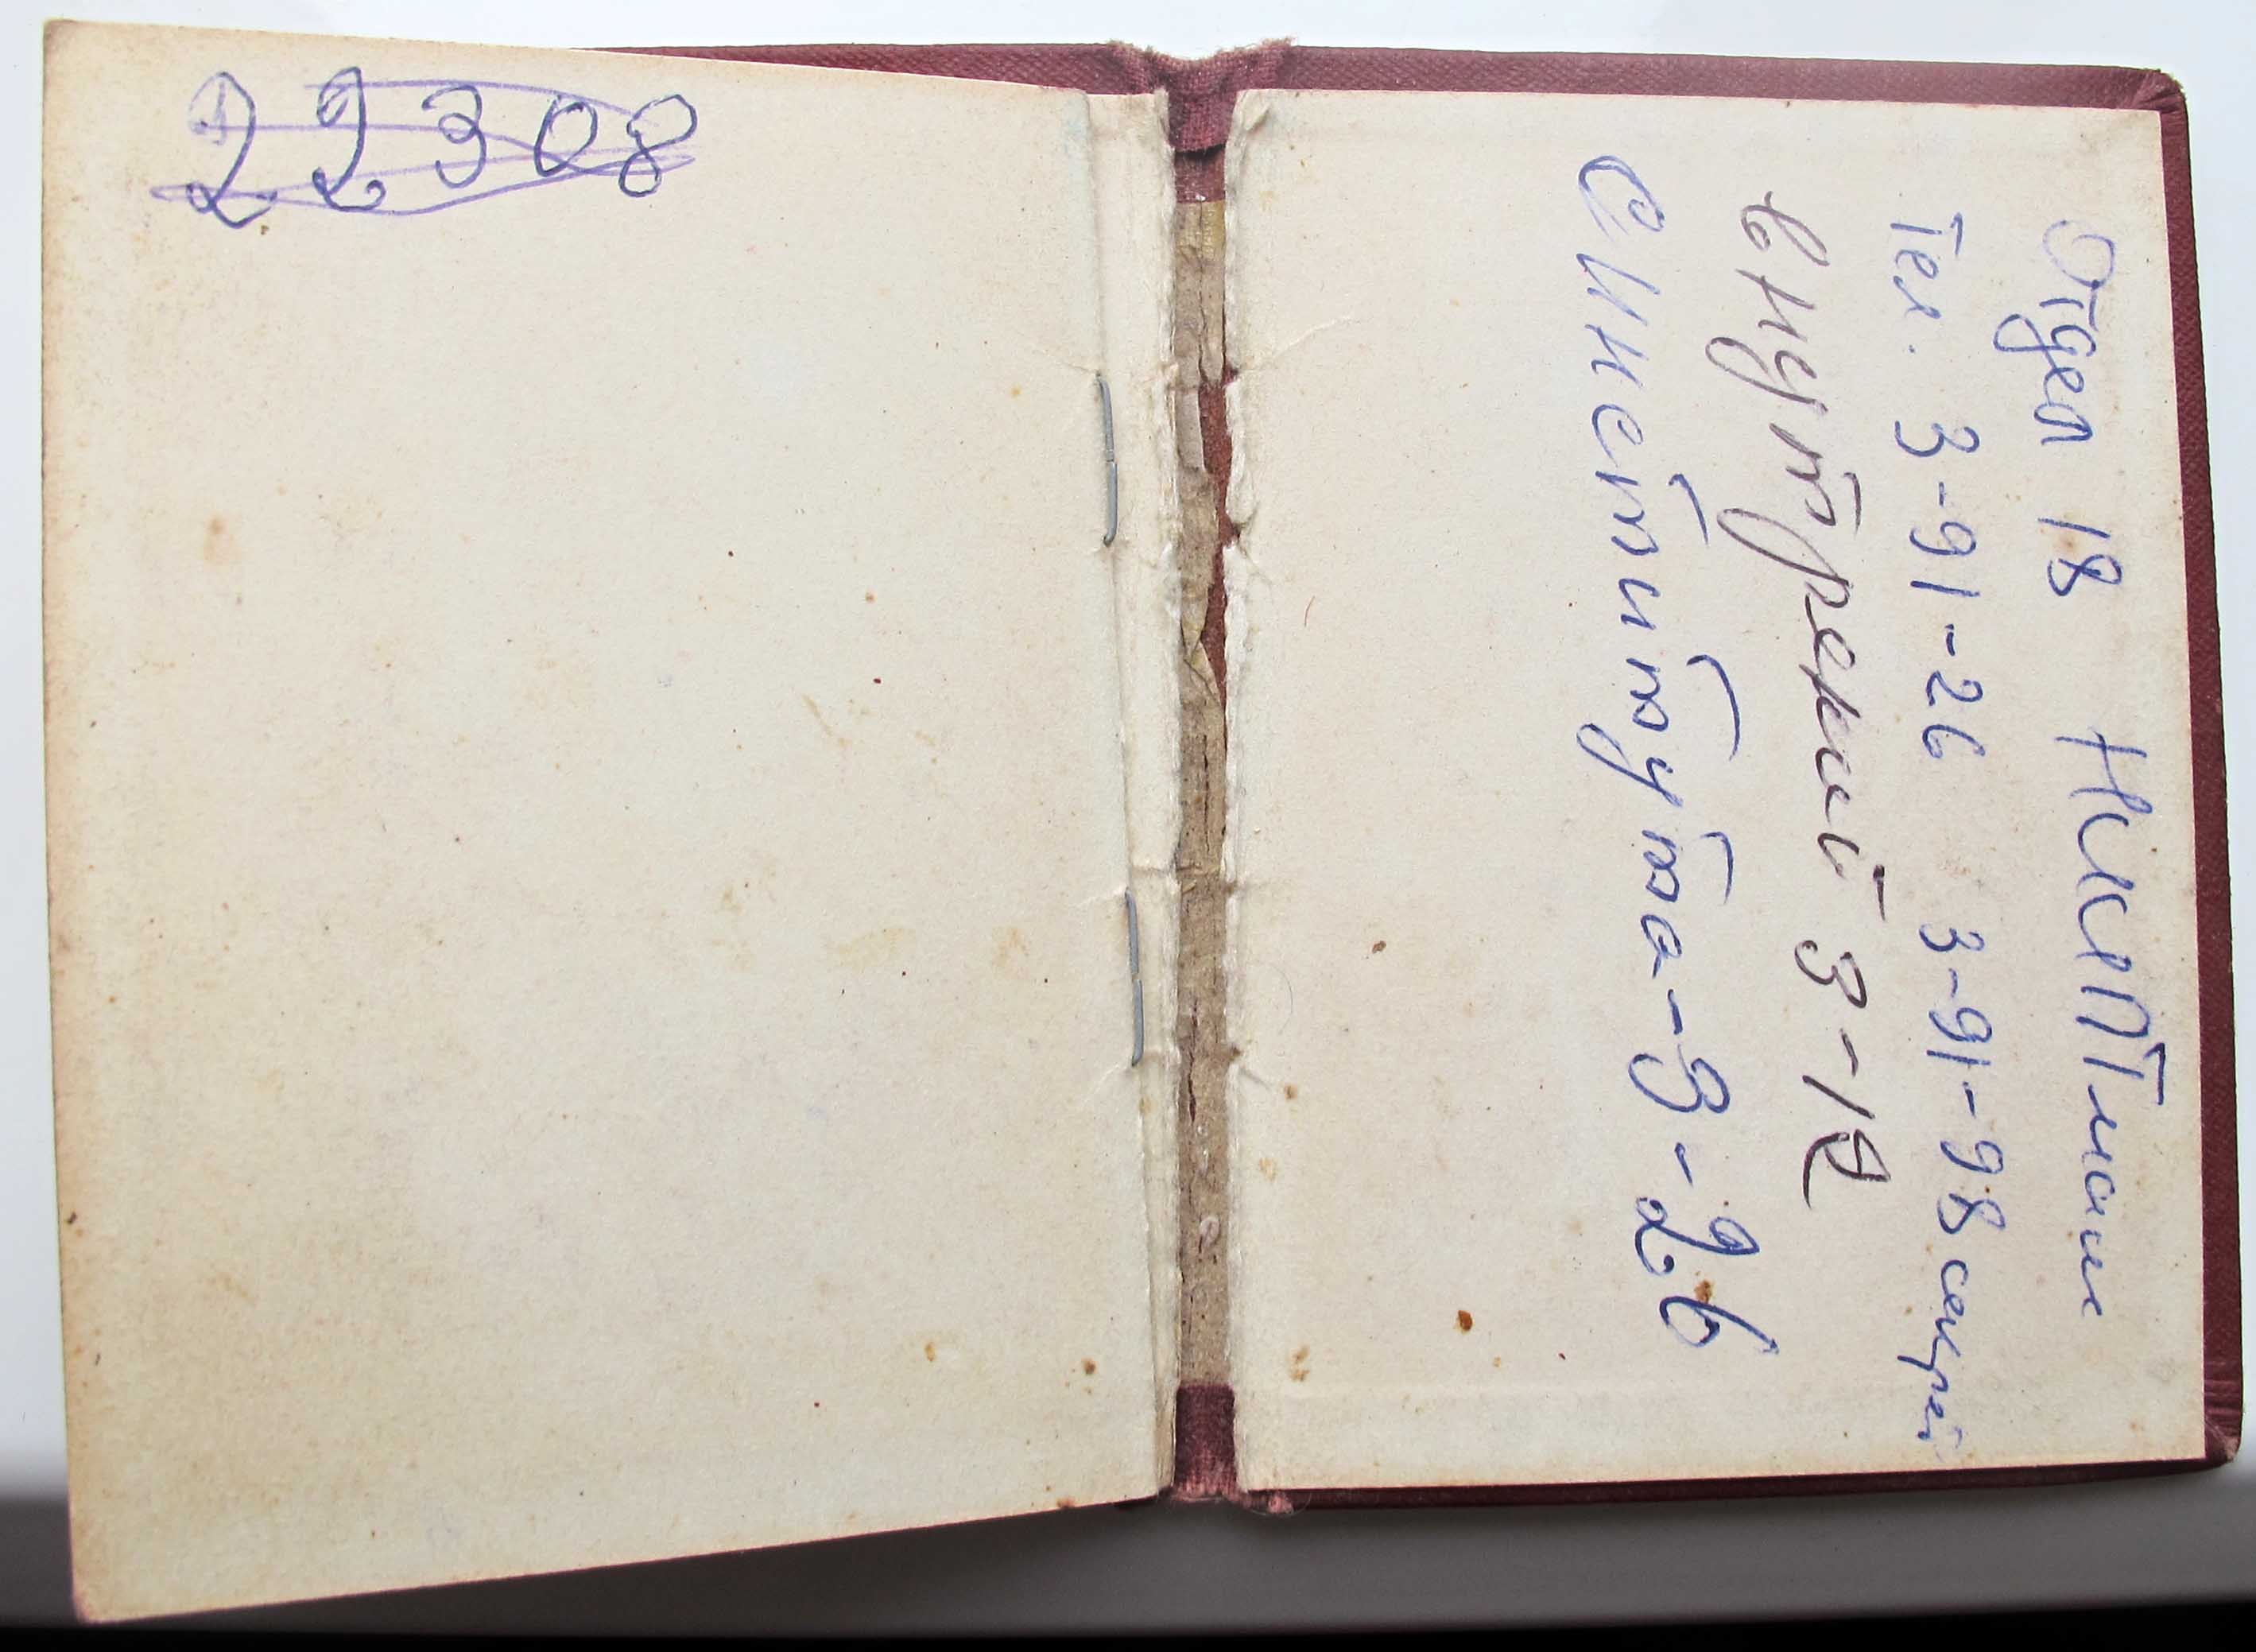 22308
Отдел 18 НИКИПТмаш
Тел. 3-91-26 3-91-98 секрет
внутрений 3-12
С Института-3-26